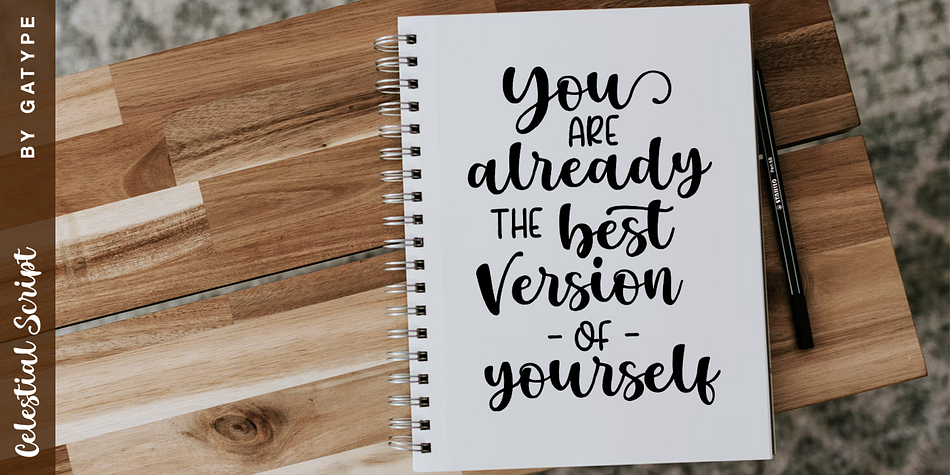 BY GATYPE
Celestial Script
You
ARE
already
THE best
Version
- OF -
yourself
STABILO